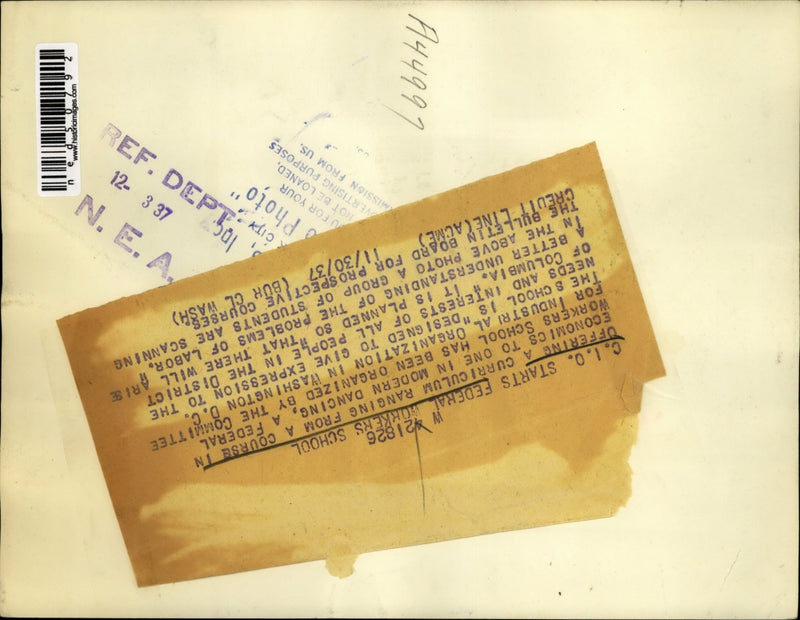 A44997
ned50792
www.historicimages.com
REF. DEPT.
12- 3 37
N. E. A.
Photo"
U FOR YOUR
NOT BE LOANED,
VERTISING PURPOSES
MISSION FROM US.
W421826
C.I.O. STARTS FEDERAL WORKERS SCHOOL
OFFERING A CURRICULUM RANGING FROM A COURSE IN
ECONOMICS TO ONE IN MODERN DANCING, A FEDERAL
WORKERS SCHOOL HAS BEEN ORGANIZED BY THE COMMITTEE
FOR INDUSTRIAL ORGANIZATION IN WASHINGTON D.C.
THE SCHOOL IS "DESIGNED TO GIVE EXPRESSION TO THE
NEEDS AND INTERESTS OF ALL PEOPLE IN THE DISTRICT
OF COLUMBIA." IT IS PLANNED SO "THAT THERE WILL ARISE
A BETTER UNDERSTANDING OF THE PROBLEMS OF LABOR."
IN THE ABOVE PHOTO A GROUP OF STUDENTS ARE SCANNING
THE BULLETIN BOARD FOR PROSPECTIVE COURSES.
CREDIT LINE(ACME) 11/30/37 (BUR CL WASH)